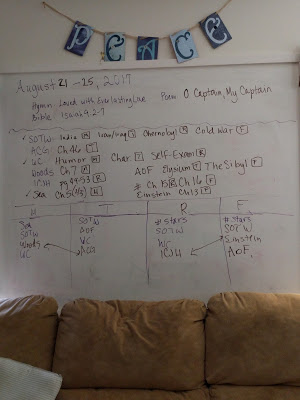 PEACE
August 21-25, 2017
Hymn Loved with Everlasting Love
Poem O Captain, My Captain
Bible Isaiah 9:2-7
✓ SOTW: India M Chernobyl R Cold War F
ACG: Ch 46 T
✓ WC Humor M Char. T Self-Exam R
Woods Ch 7 M AOF Elysium T The Sibyl F
ICSH pg 49-53 R # Ch 15 R Ch 16 F
✓ Sea Ch 5 M Einstein Ch 13 F
M T R F
Sea
SOTW
Woods
WC
SOTW
AOF
WC
ACG
# stars
SOTW
WC
ICSH
# stars
SOTW
Einstein
AOF